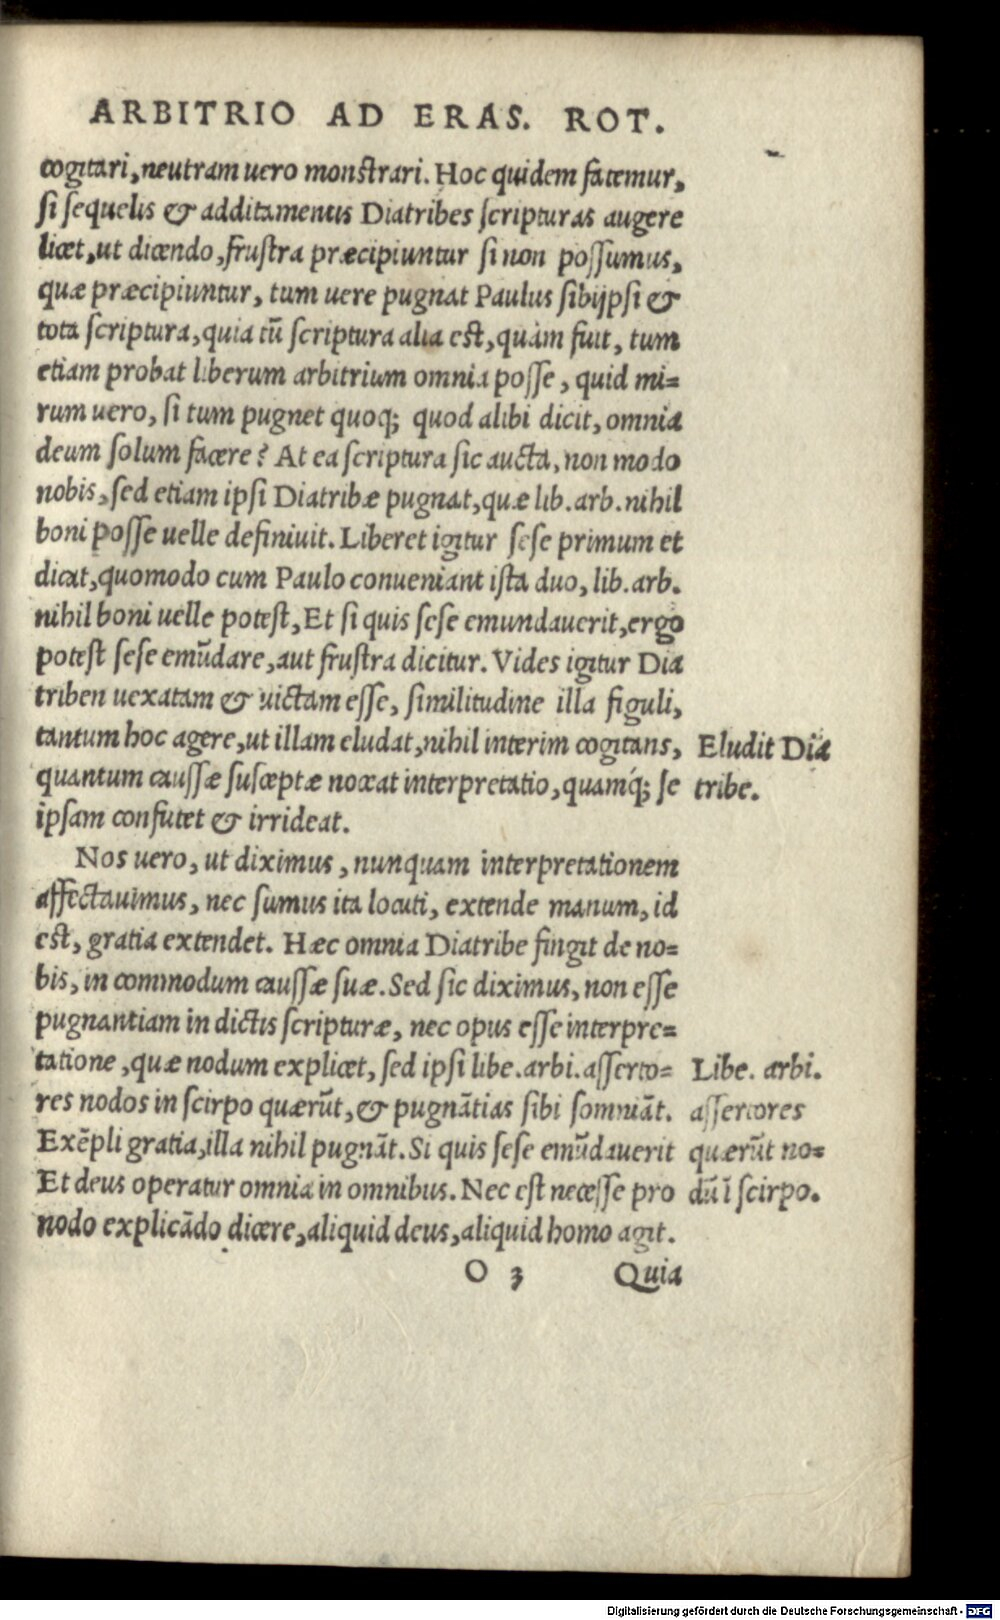 ARBITRIO AD ERAS. ROT.
cogitari, neutram uero monstrari. Hoc quidem fatemur,
si sequelis & additamentis Diatribes scripturas augere
licet, ut dicendo, frustra præcipiuntur si non possumus,
quæ præcipiuntur, tum uere pugnat Paulus sibijpsi &
tota scriptura, quia tū scriptura alia est, quàm fuit, tum
etiam probat liberum arbitrium omnia posse, quid mi=
rum uero, si tum pugnet quoq; quod alibi dicit, omnia
deum solum facere? At ea scriptura sic aucta, non modo
nobis, sed etiam ipsi Diatribæ pugnat, quæ lib. arb. nihil
boni posse uelle definiuit. Liberet igitur sese primum et
dicat, quomodo cum Paulo conueniant ista duo, lib. arb.
nihil boni uelle potest, Et si quis sese emundauerit, ergo
potest sese emūdare, aut frustra dicitur. Vides igitur Dia
triben uexatam & uictam esse, similitudine illa figuli,
tantum hoc agere, ut illam eludat, nihil interim cogitans,
quantum caussæ susceptæ noceat interpretatio, quamq́; se
ipsam confutet & irrideat.
Eludit Dia
tribe.
Nos uero, ut diximus, nunquam interpretationem
affectauimus, nec sumus ita locuti, extende manum, id
est, gratia extendet. Hæc omnia Diatribe fingit de no=
bis, in commodum caussæ suæ. Sed sic diximus, non esse
pugnantiam in dictis scripturæ, nec opus esse interpre=
tatione, quæ nodum explicet, sed ipsi libe. arbi. asserto=
res nodos in scirpo quærūt, & pugnātias sibi somniāt.
Exēpli gratia, illa nihil pugnāt. Si quis sese emūdauerit
Et deus operatur omnia in omnibus. Nec est necesse pro
nodo explicādo dicere, aliquid deus, aliquid homo agit.
Libe. arbi.
assertores
quærūt no=
dū ī scirpo.
O 3 Quia
Digitalisierung gefördert durch die Deutsche Forschungsgemeinschaft - DFG